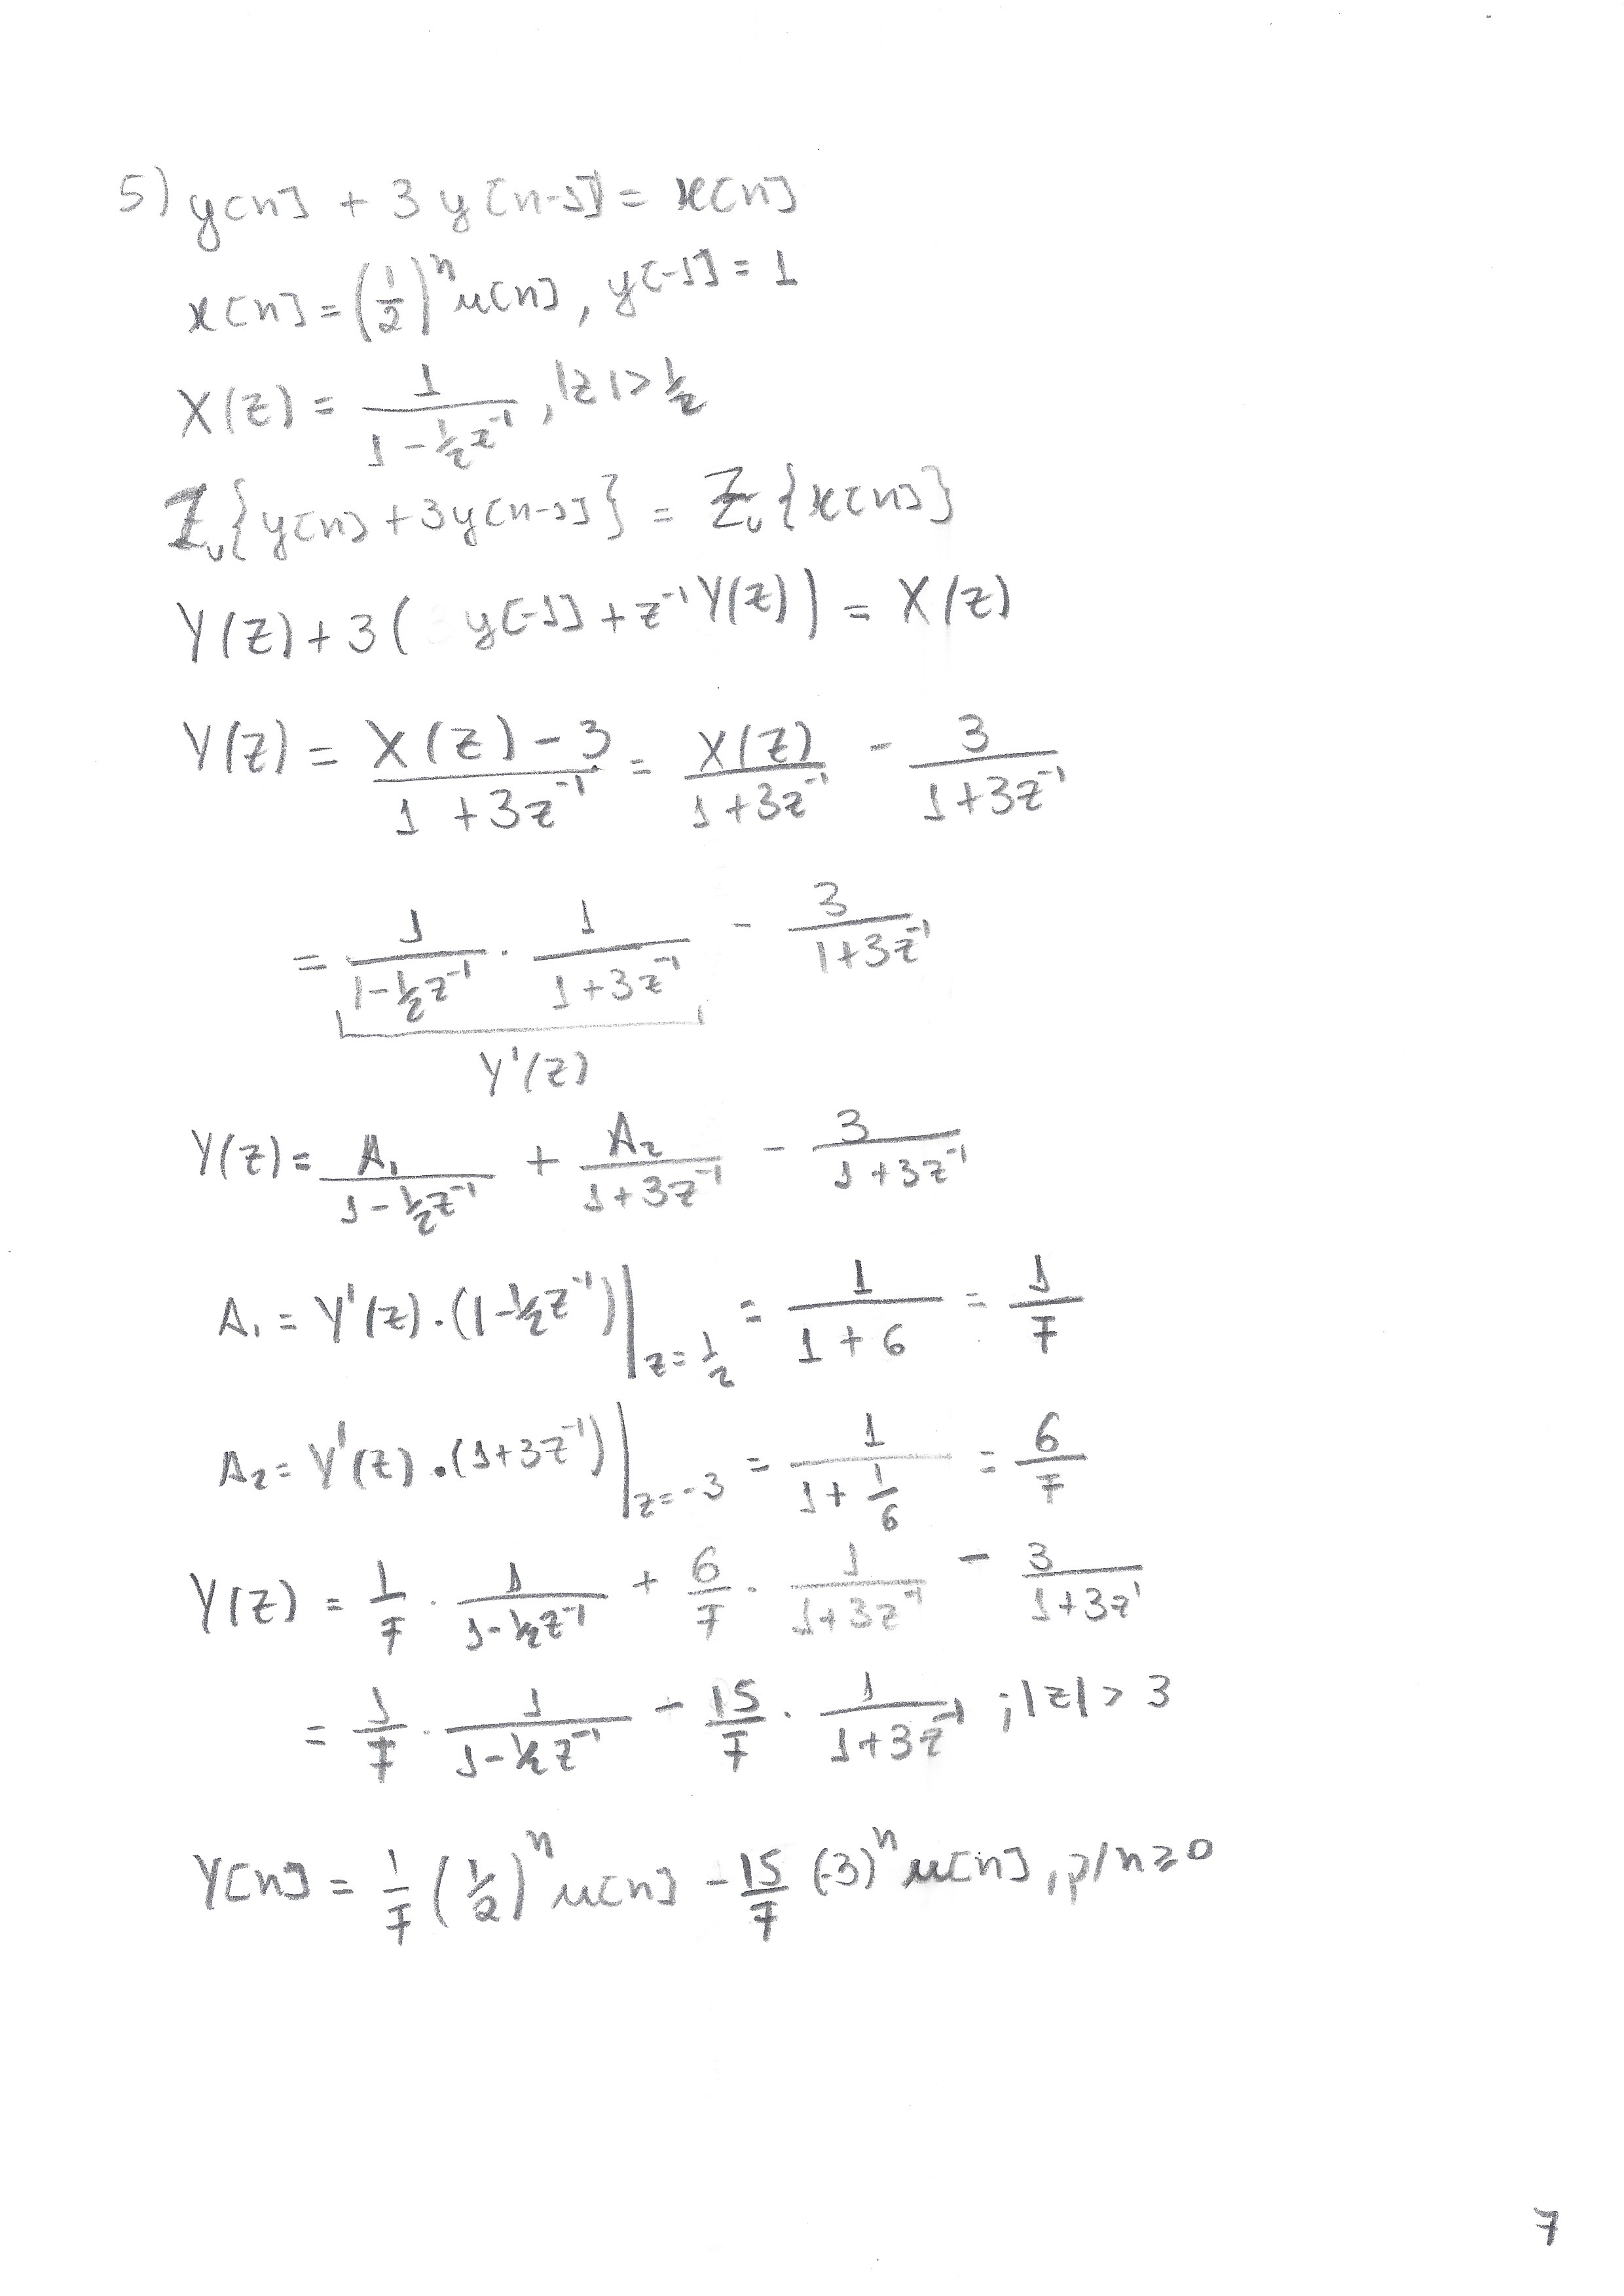 5) y[n] + 3 y[n-1] = x[n]
x[n] = (1/2)^n u[n], y[-1] = 1
X(z) = 1/(1 - ½z⁻¹), |z| > ½
Z_u{y[n] + 3y[n-1]} = Z_u{x[n]}
Y(z) + 3( y[-1] + z⁻¹Y(z)) = X(z)
Y(z) = (X(z) - 3)/(1 + 3z⁻¹) = X(z)/(1 + 3z⁻¹) - 3/(1 + 3z⁻¹)
= 1/(1 - ½z⁻¹) · 1/(1 + 3z⁻¹) - 3/(1 + 3z⁻¹)
Y'(z)
Y(z) = A₁/(1 - ½z⁻¹) + A₂/(1 + 3z⁻¹) - 3/(1 + 3z⁻¹)
A₁ = Y'(z) · (1 - ½z⁻¹)|z=½ = 1/(1 + 6) = 1/7
A₂ = Y'(z) · (1 + 3z⁻¹)|z=-3 = 1/(1 + 1/6) = 6/7
Y(z) = 1/7 · 1/(1 - ½z⁻¹) + 6/7 · 1/(1 + 3z⁻¹) - 3/(1 + 3z⁻¹)
= 1/7 · 1/(1 - ½z⁻¹) - 15/7 · 1/(1 + 3z⁻¹) ; |z| > 3
Y[n] = 1/7 (½)^n u[n] - 15/7 (-3)^n u[n], p/ n ≥ 0
7